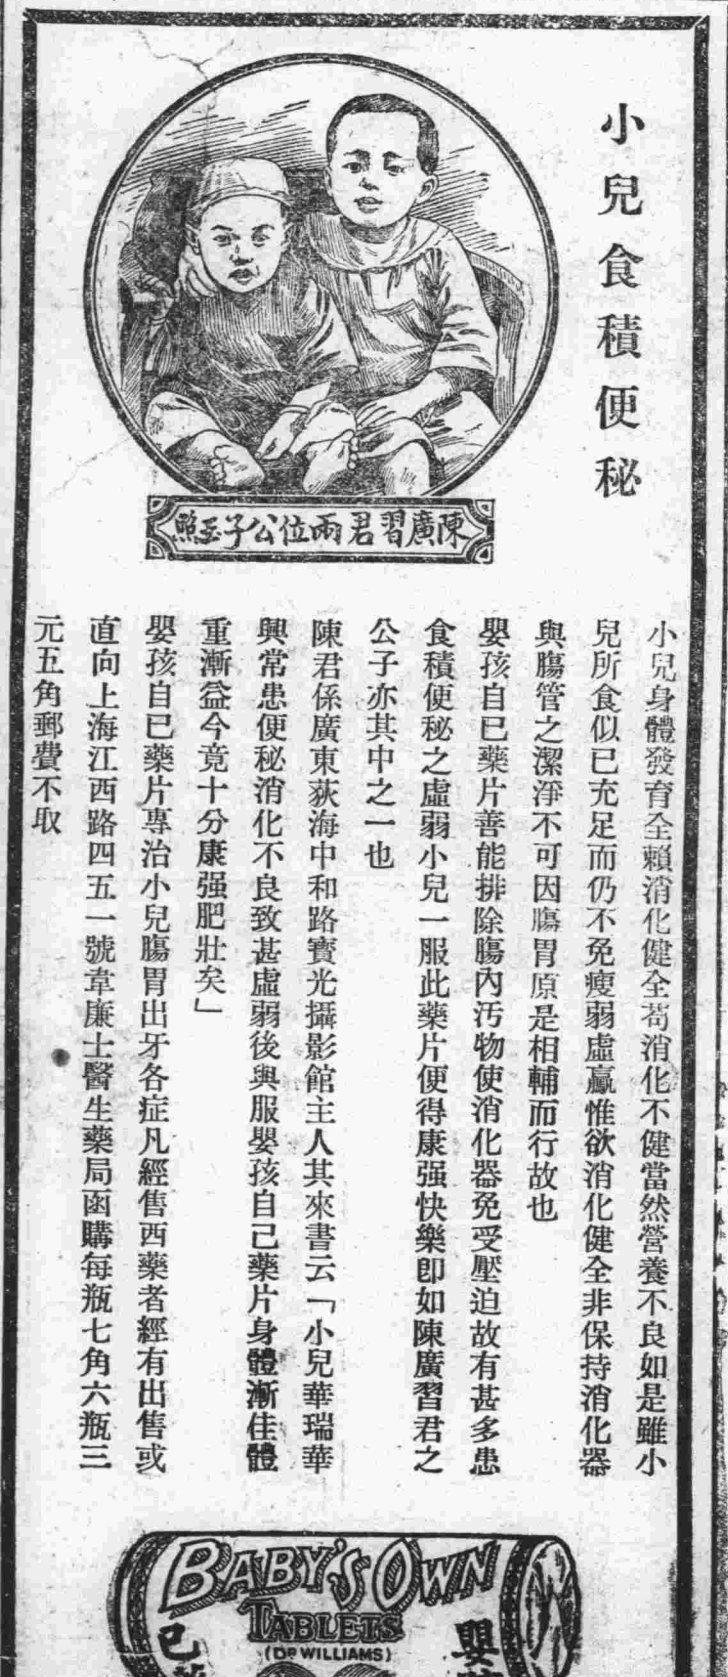 小兒食積便秘
陳廣習君兩位公子玉照
小兒身體發育全賴消化健全苟消化不健當然營養不良如是雖小
兒所食似已充足而仍不免瘦弱虛羸惟欲消化健全非保持消化器
與腸管之潔淨不可因腸胃原是相輔而行故也
嬰孩自已藥片善能排除腸內汚物使消化器免受壓迫故有甚多患
食積便秘之虛弱小兒一服此藥片便得康强快樂卽如陳廣習君之
公子亦其中之一也
陳君係廣東荻海中和路寶光攝影館主人其來書云「小兒華瑞華
興常患便秘消化不良致甚虛弱後與服嬰孩自己藥片身體漸佳體
重漸益今竟十分康强肥壯矣」
嬰孩自已藥片專治小兒腸胃出牙各症凡經售西藥者經有出售或
直向上海江西路四五一號韋廉士醫生藥局函購每瓶七角六瓶三
元五角郵費不取
BABY'S OWN
TABLETS
(DR WILLIAMS)
嬰
己